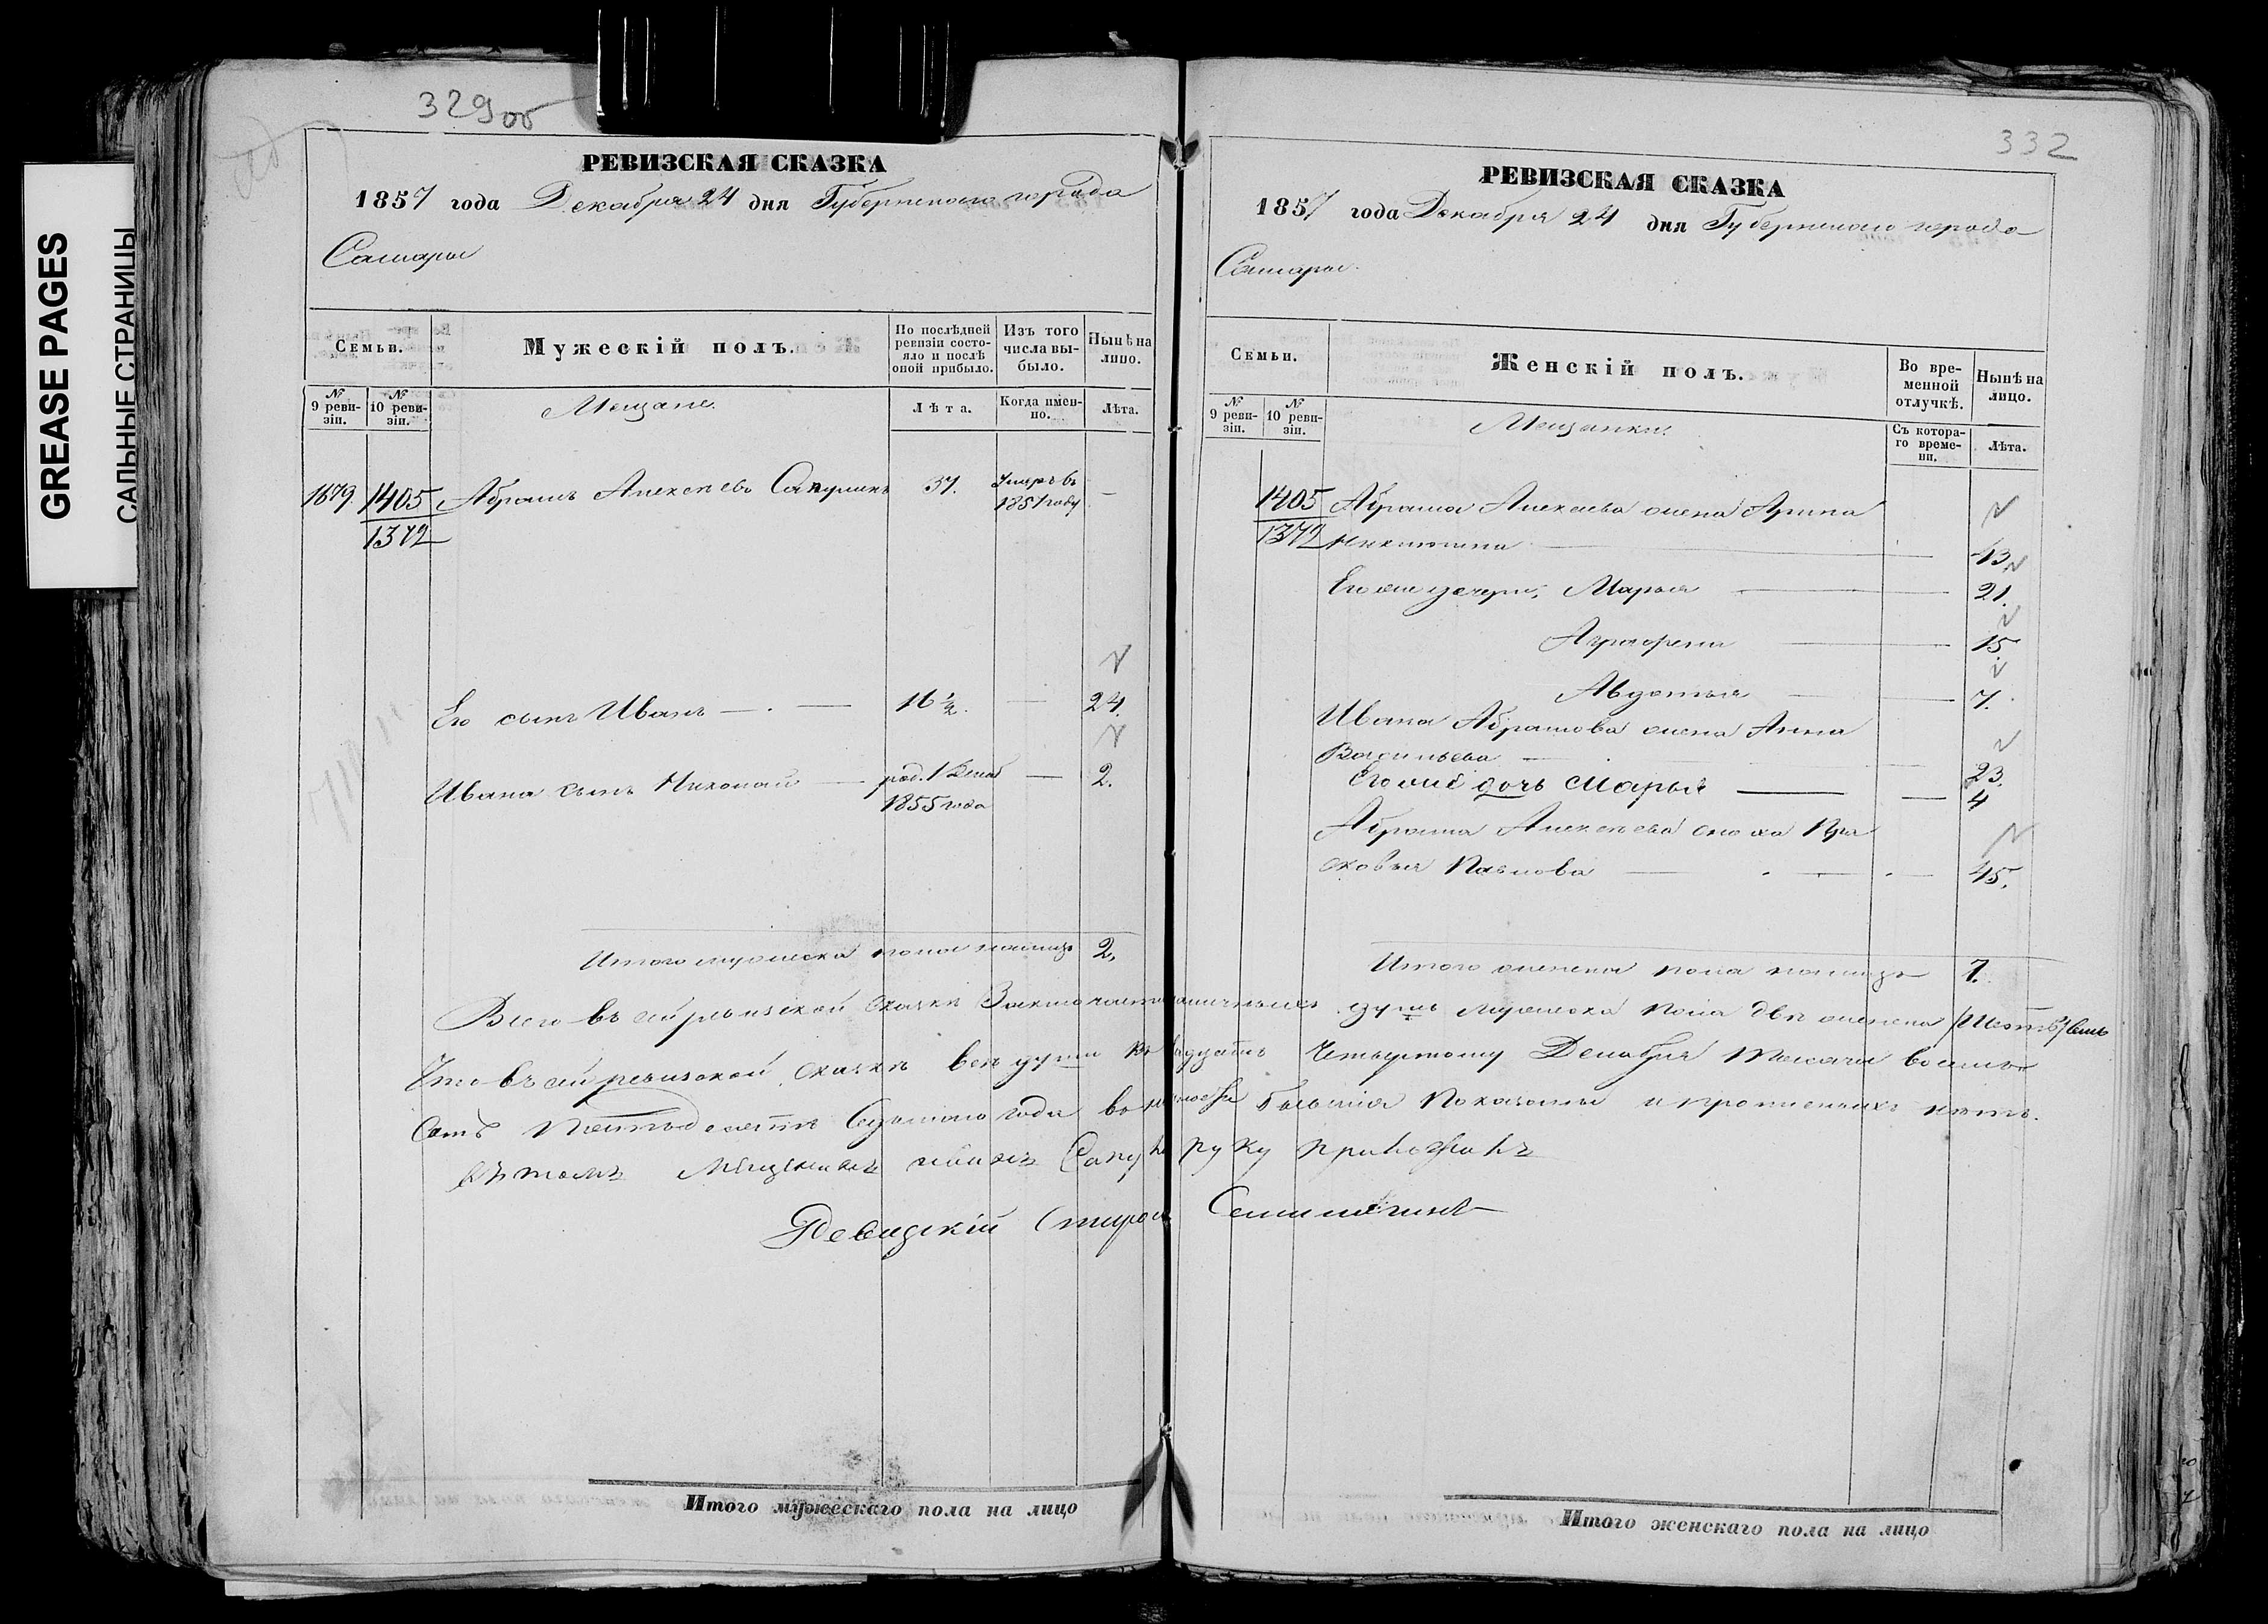 GREASE PAGES
САЛЬНЫЕ СТРАНИЦЫ
329об
РЕВИЗСКАЯ СКАЗКА
1857 года Декабря 24 дня Губернского города
Самары
Семьи.
Мужескій полъ.
По послѣдней ревизіи состояло и послѣ оной прибыло.
Изъ того числа выбыло.
Нынѣ на лицо.
№ 9 ревизіи.
№ 10 ревизіи.
Мещане.
Лѣта.
Когда именно.
Лѣта.
1679. 1405 Абрамъ Алексѣевъ 37. Умеръ въ —
1372 1851 году
Его сынъ Иванъ — 16 ½. — 24.
Ивана сынъ Николай — род. 1 Декаб — 2.
1855 года
Итого мужеска пола налицо 2.
Итого мужескаго пола на лицо
332
РЕВИЗСКАЯ СКАЗКА
1857 года Декабря 24 дня Губернского города
Самары.
Семьи.
Женскій полъ.
Во временной отлучкѣ.
Нынѣ на лицо.
№ 9 ревизіи.
№ 10 ревизіи.
Мещанки.
Съ котораго времени.
Лѣта.
1405 Абрама Алексеева жена Арина
1372 Никитина — 43
Его же дочери, Марья — 21.
Аграфена — 15
Авдотья — 7.
Ивана Абрамова жена Анна
Васильева — 23.
Его же дочь Марья — 4
Абрама Алексеева сноха Пра
сковья Павлова — 45.
Итого женска пола налицо 7.
Всего въ сей ревизской сказке Заключается наличныхъ душъ мужеска пола две женска /Шесть/ семь
Что въ сей ревизской сказкѣ все души къ двадцать Четвертому Декабря тысяча восемь
сотъ Пятьдесятъ Седьмого года въ наличности бывшія показаны и прописныхъ нетъ.
въ томъ Мещанинъ иванъ руку приложилъ
Ревизскій Староста
Итого женскаго пола на лицо